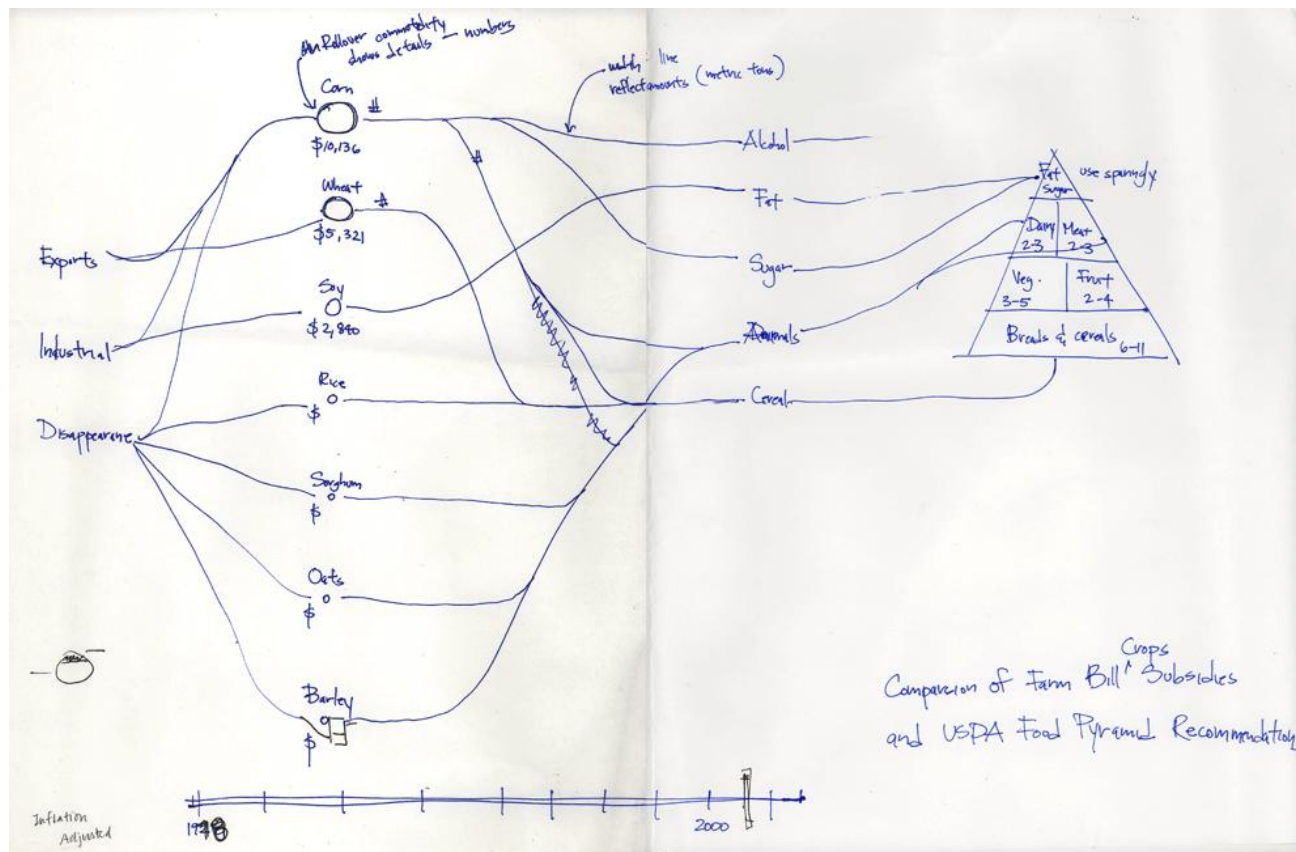 Rollover commodity
shows details - numbers
width: line
reflect amounts (metric tons)
Corn
#
$10,136
#
Wheat
#
$5,321
Soy
$2,840
Rice
$
Sorghum
$
Oats
$
Barley
$
Exports
Industrial
Disappearance
Alcohol
Fat
Sugar
Animals
Cereal
Fat
Sugar
use sparingly
Dairy
2-3
Meat
2-3
Veg.
3-5
Fruit
2-4
Breads & cereals
6-11
Crops
Comparsion of Farm Bill ^ Subsidies
and USPA Food Pyramid Recommendation
Inflation
Adjusted
2000